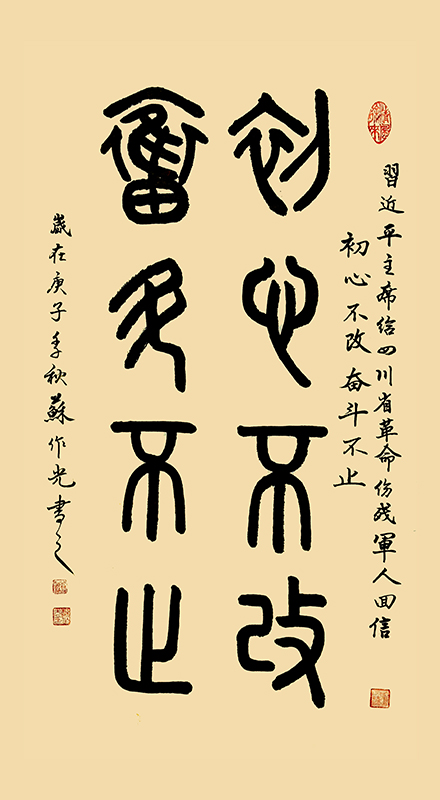 習近平主席给四川省革命伤残軍人回信
初心不改奋斗不止
初心不改
奮斗不止
歲在庚子季秋蘇作光書之